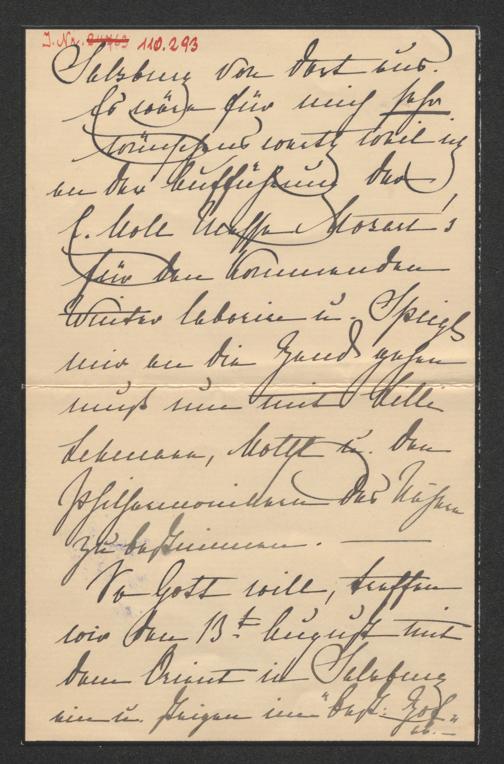 J. No. 110.293
Salzburg von dort aus.
Es wäre für mich sehr
wünschenswerth weil ich
an der Aufführung der
C. Moll Messe Mozart's
für den kommenden
Winter laborire u.
mir an die Hand gehen
muß um mit Lilli
Lehmann, Mottl u. den
Philharmonikern das Nähere
zu bestimmen. —
So Gott will, treffen
wir den 13t August mit
dem Orient in Salzburg
ein u. steigen im "Oest: Hof"
ab.—